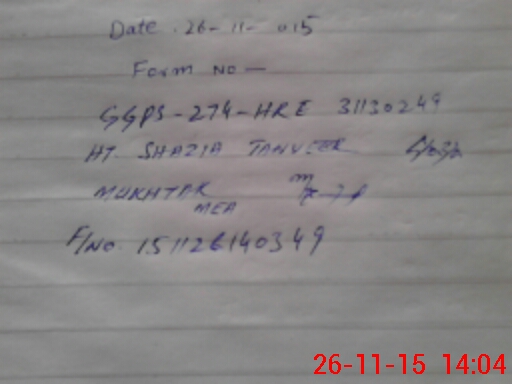 Date . 26-11-015
Form No —
GGPS-274-HRE 31130249
HT. SHAZIA TANVEER
MUKHTAR
MEA
F/No. 151126140349
26-11-15 14:04